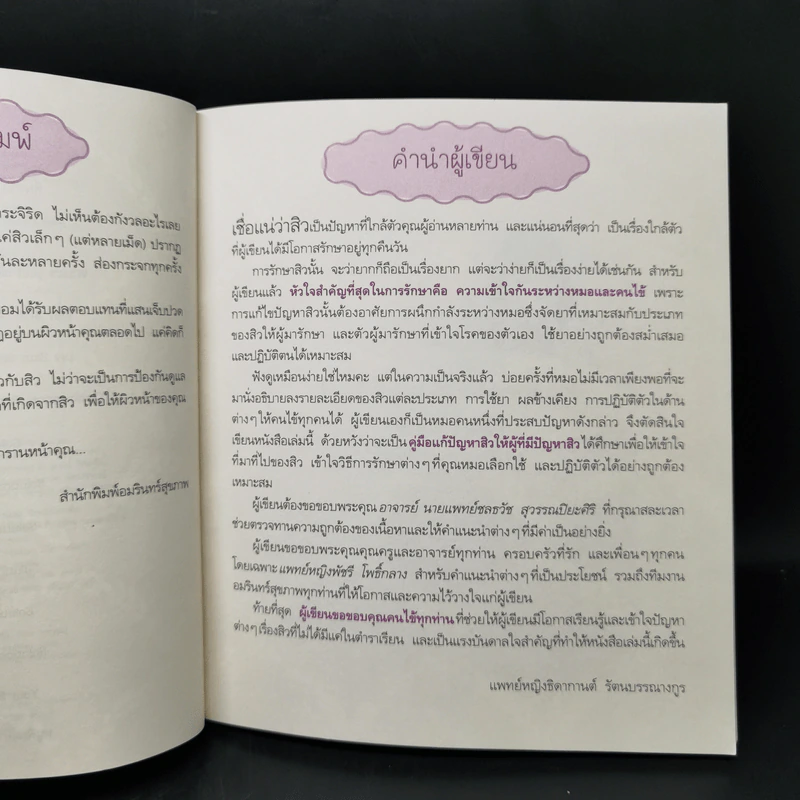 มพ์
ระจิริด ไม่เห็นต้องกังวลอะไรเลย
ค่สิวเล็กๆ (แต่หลายเม็ด) ปรากฏ
ันละหลายครั้ง ส่องกระจกทุกครั้ง
อมได้รับผลตอบแทนที่แสนเจ็บปวด
อยู่บนผิวหน้าคุณตลอดไป แค่คิดก็
วกับสิว ไม่ว่าจะเป็นการป้องกันดูแล
ที่เกิดจากสิว เพื่อให้ผิวหน้าของคุณ
กรานหน้าคุณ...
สำนักพิมพ์อมรินทร์สุขภาพ
คำนำผู้เขียน
เชื่อแน่ว่าสิวเป็นปัญหาที่ใกล้ตัวคุณผู้อ่านหลายท่าน และแน่นอนที่สุดว่า เป็นเรื่องใกล้ตัว
ที่ผู้เขียนได้มีโอกาสรักษาอยู่ทุกคืนวัน
การรักษาสิวนั้น จะว่ายากก็ถือเป็นเรื่องยาก แต่จะว่าง่ายก็เป็นเรื่องง่ายได้เช่นกัน สำหรับ
ผู้เขียนแล้ว หัวใจสำคัญที่สุดในการรักษาคือ ความเข้าใจกันระหว่างหมอและคนไข้ เพราะ
การแก้ไขปัญหาสิวนั้นต้องอาศัยการผนึกกำลังระหว่างหมอซึ่งจัดยาที่เหมาะสมกับประเภท
ของสิวให้ผู้มารักษา และตัวผู้มารักษาที่เข้าใจโรคของตัวเอง ใช้ยาอย่างถูกต้องสม่ำเสมอ
และปฏิบัติตนได้เหมาะสม
ฟังดูเหมือนง่ายใช่ไหมคะ แต่ในความเป็นจริงแล้ว บ่อยครั้งที่หมอไม่มีเวลาเพียงพอที่จะ
มานั่งอธิบายลงรายละเอียดของสิวแต่ละประเภท การใช้ยา ผลข้างเคียง การปฏิบัติตัวในด้าน
ต่างๆให้คนไข้ทุกคนได้ ผู้เขียนเองก็เป็นหมอคนหนึ่งที่ประสบปัญหาดังกล่าว จึงตัดสินใจ
เขียนหนังสือเล่มนี้ ด้วยหวังว่าจะเป็นคู่มือแก้ปัญหาสิวให้ผู้ที่มีปัญหาสิวได้ศึกษาเพื่อให้เข้าใจ
ที่มาที่ไปของสิว เข้าใจวิธีการรักษาต่างๆที่คุณหมอเลือกใช้ และปฏิบัติตัวได้อย่างถูกต้อง
เหมาะสม
ผู้เขียนต้องขอขอบพระคุณ อาจารย์ นายแพทย์ชลธวัช สุวรรณปิยะศิริ ที่กรุณาสละเวลา
ช่วยตรวจทานความถูกต้องของเนื้อหาและให้คำแนะนำต่างๆที่มีค่าเป็นอย่างยิ่ง
ผู้เขียนขอขอบพระคุณคุณครูและอาจารย์ทุกท่าน ครอบครัวที่รัก และเพื่อนๆทุกคน
โดยเฉพาะแพทย์หญิงพัชรี โพธิ์กลาง สำหรับคำแนะนำต่างๆที่เป็นประโยชน์ รวมถึงทีมงาน
อมรินทร์สุขภาพทุกท่านที่ให้โอกาสและความไว้วางใจแก่ผู้เขียน
ท้ายที่สุด ผู้เขียนขอขอบคุณคนไข้ทุกท่านที่ช่วยให้ผู้เขียนมีโอกาสเรียนรู้และเข้าใจปัญหา
ต่างๆเรื่องสิวที่ไม่ได้มีแค่ในตำราเรียน และเป็นแรงบันดาลใจสำคัญที่ทำให้หนังสือเล่มนี้เกิดขึ้น
แพทย์หญิงธิดากานต์ รัตนบรรณางกูร